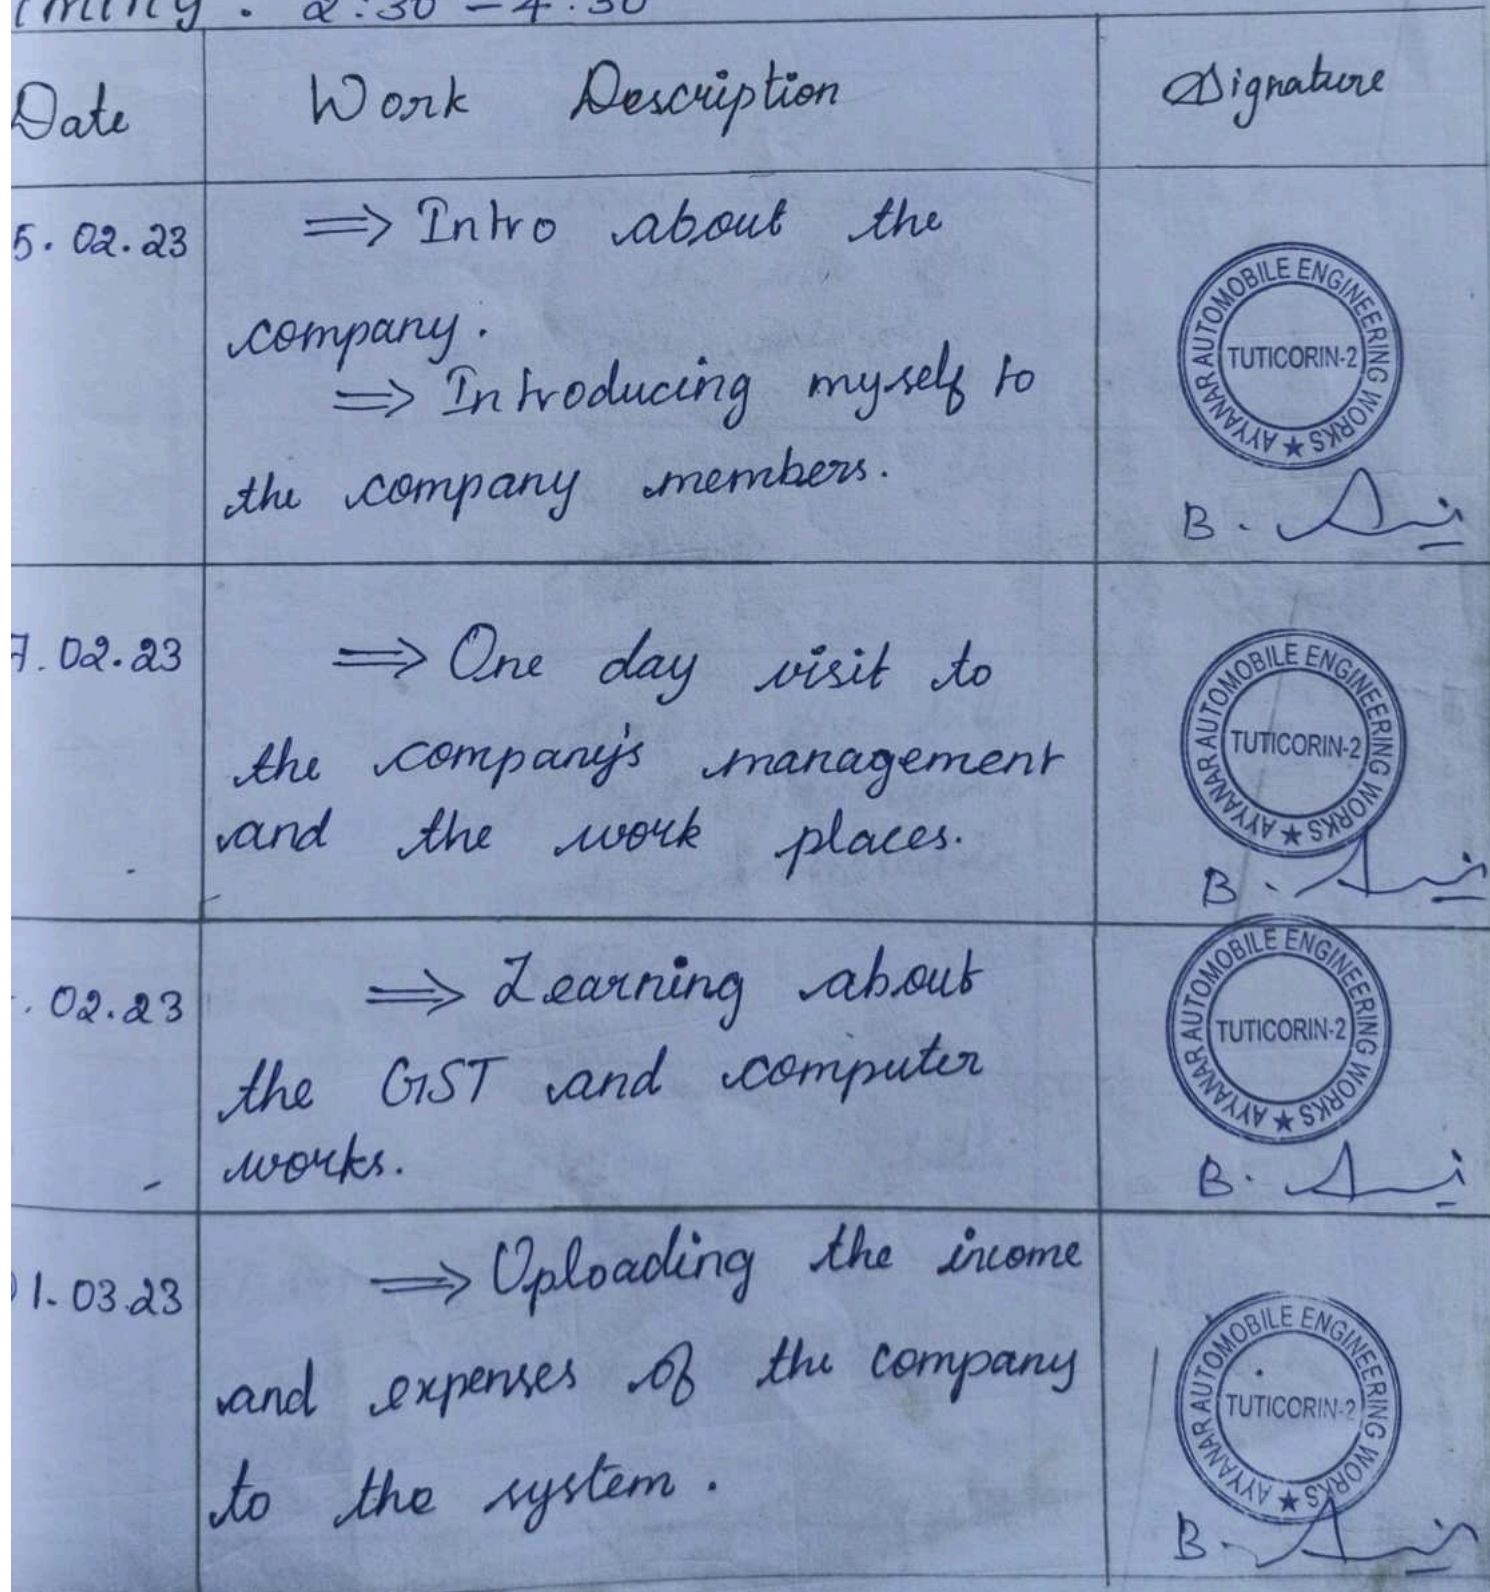 Timing : 2:30 - 4:30
Date Work Description Signature
5.02.23 ⇒ Intro about the
company.
⇒ Introducing myself to
the company members.
AYYANAR AUTOMOBILE ENGINEERING WORKS ★
TUTICORIN-2
B.
7.02.23 ⇒ One day visit to
the company's management
and the work places.
AYYANAR AUTOMOBILE ENGINEERING WORKS ★
TUTICORIN-2
B.
. 02.23 ⇒ Learning about
the GST and computer
works.
AYYANAR AUTOMOBILE ENGINEERING WORKS ★
TUTICORIN-2
B.
01.03.23 ⇒ Uploading the income
and expenses of the company
to the system.
AYYANAR AUTOMOBILE ENGINEERING WORKS ★
TUTICORIN-2
B.